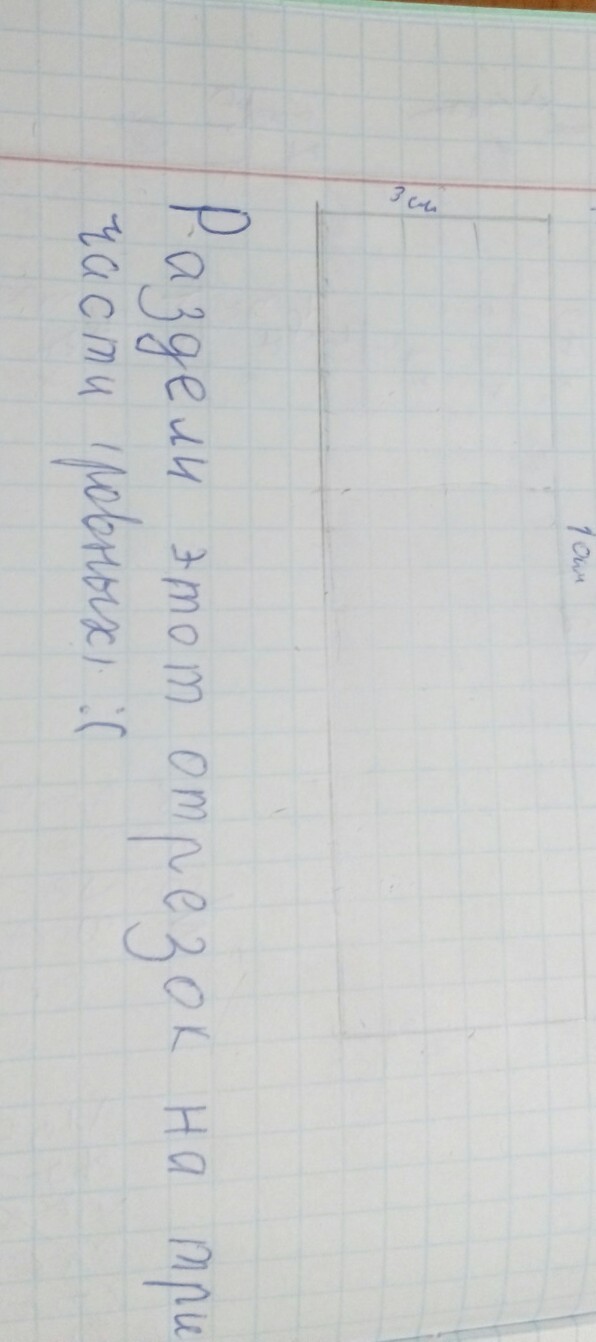 10см
3см
Раздели этот отрезок на три
части (ровных) :(